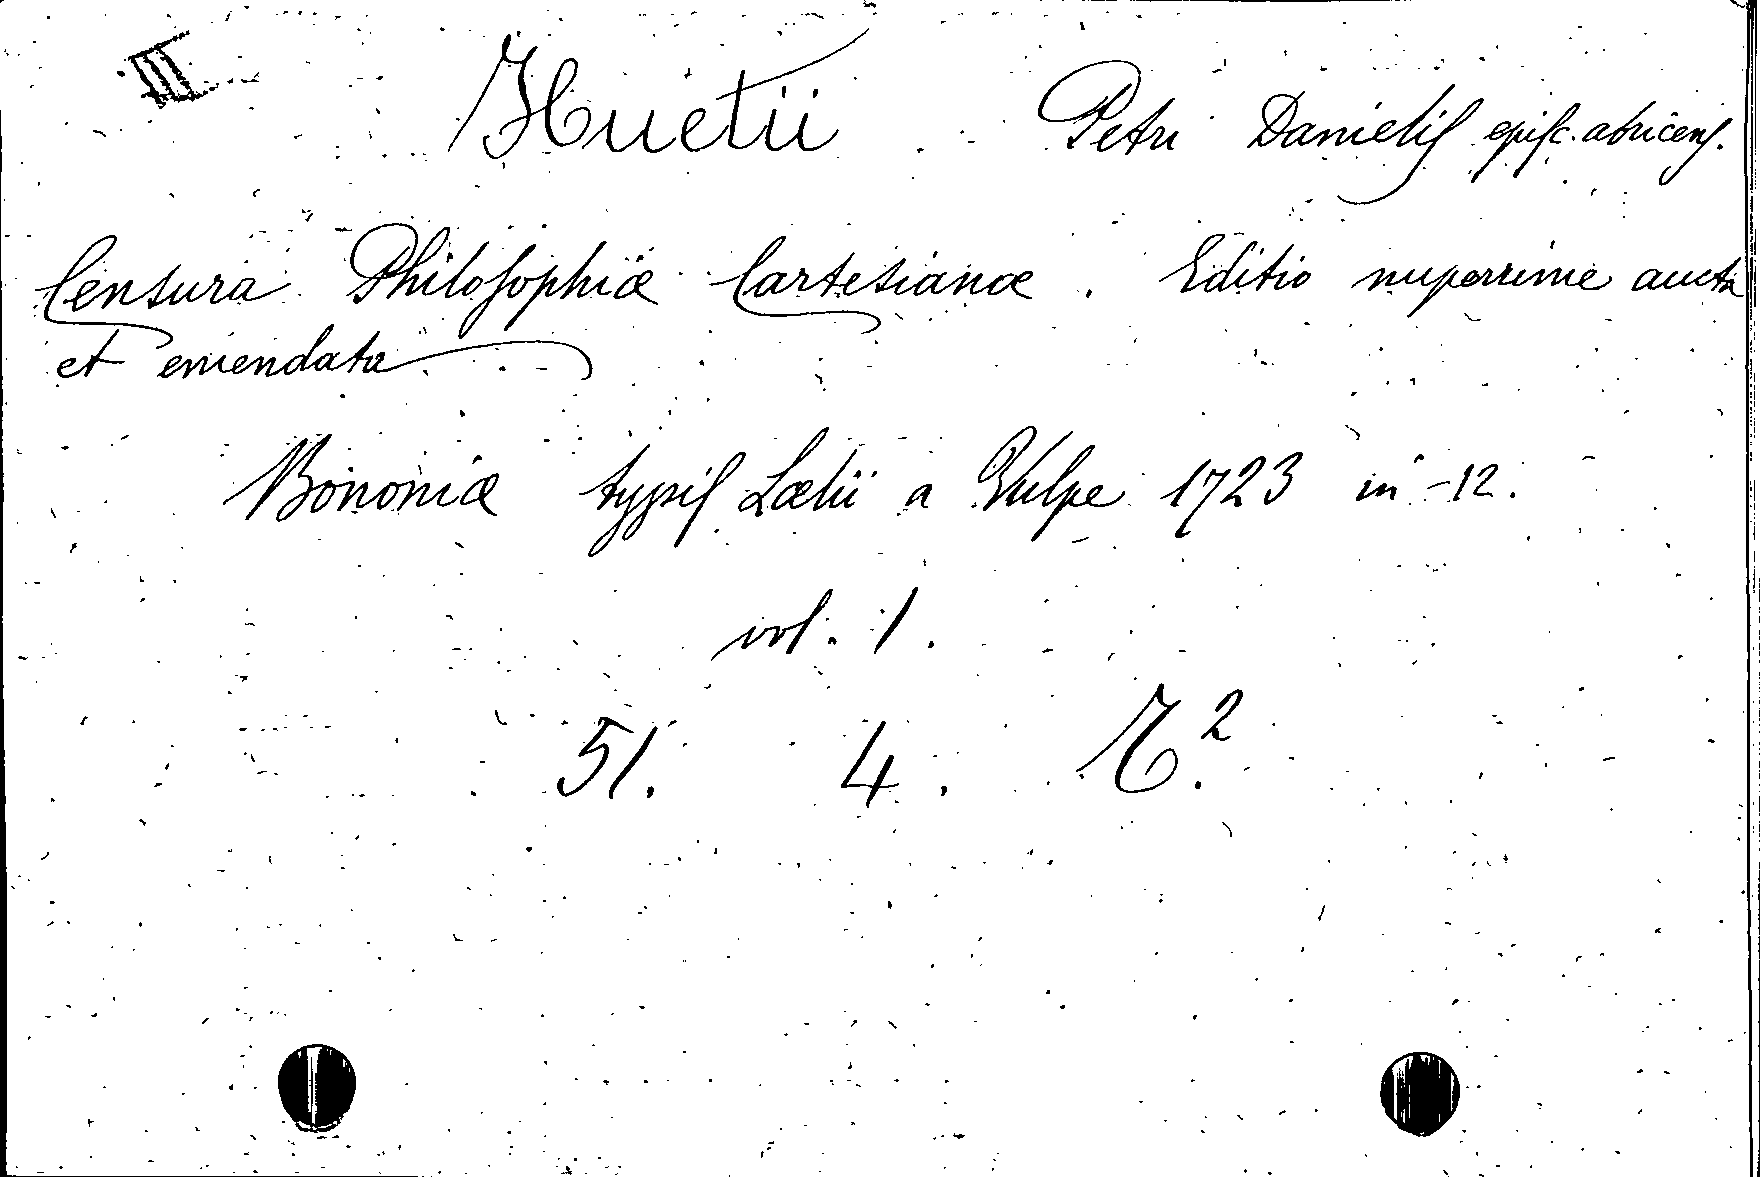 III Huetii Petri Danielis episc. abricens.
Censura Philosophiæ Cartesianæ. Editio nuperrime aucta
et emendata
Bononiæ typis Lælii a Vulpe 1723 in-12.
vol. 1.
51. 4.